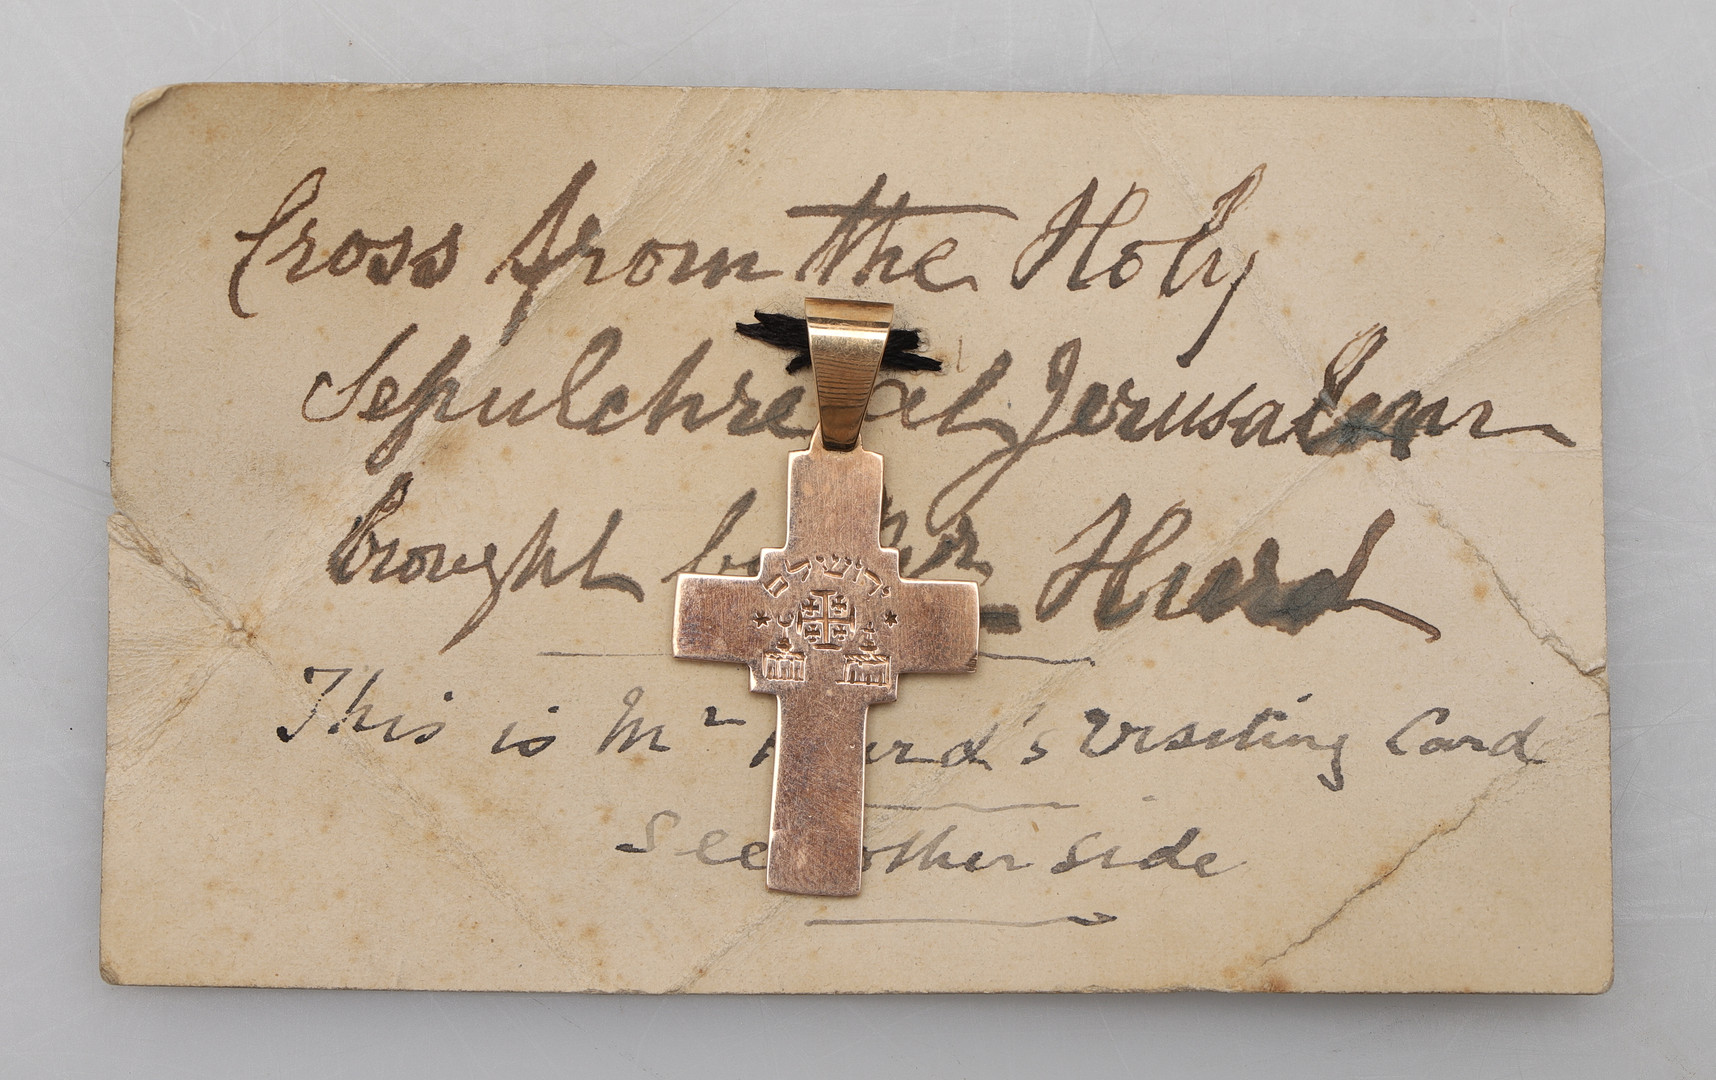 Cross from the Holy
Sepulchre at Jerusalem
brought by Mr Hurd
ירושלם
This is Mr Hurd's visiting Card
See other side